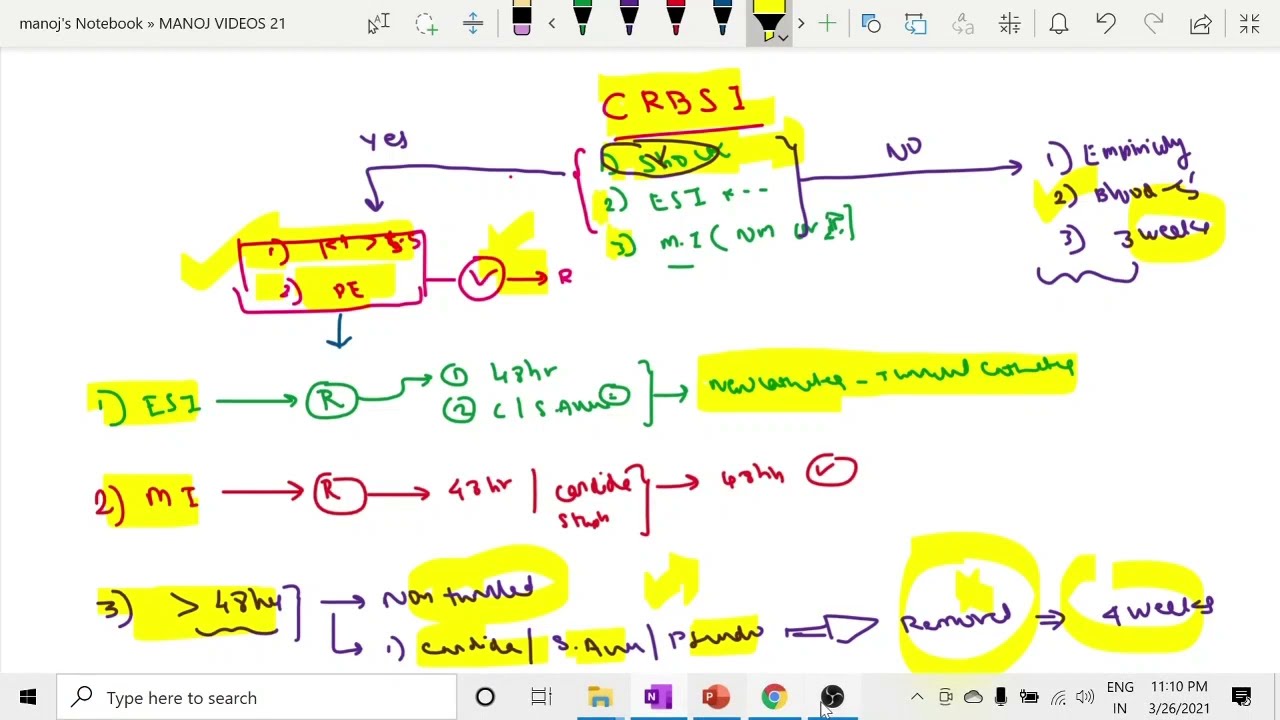 nanoj's Notebook » MANOJ VIDEOS 21
CRBSI
Yes
1) Shock
NO
1) Empiricly
2) ESI
2) Blood
3) M.I (
3) 3 weeks
1)
2) PE
R
1) ESI
R
① 48hr
② C | S. Aur
New catheter - Tunneled Catheter
2) MI
R
48hr | Candida
Staph
48hr
3) > 48hr
Non tunneled
1) Candida | S. Aur | Pseudo
Removal
4 weeks
Type here to search
ENG
IN
11:10 PM
3/26/2021